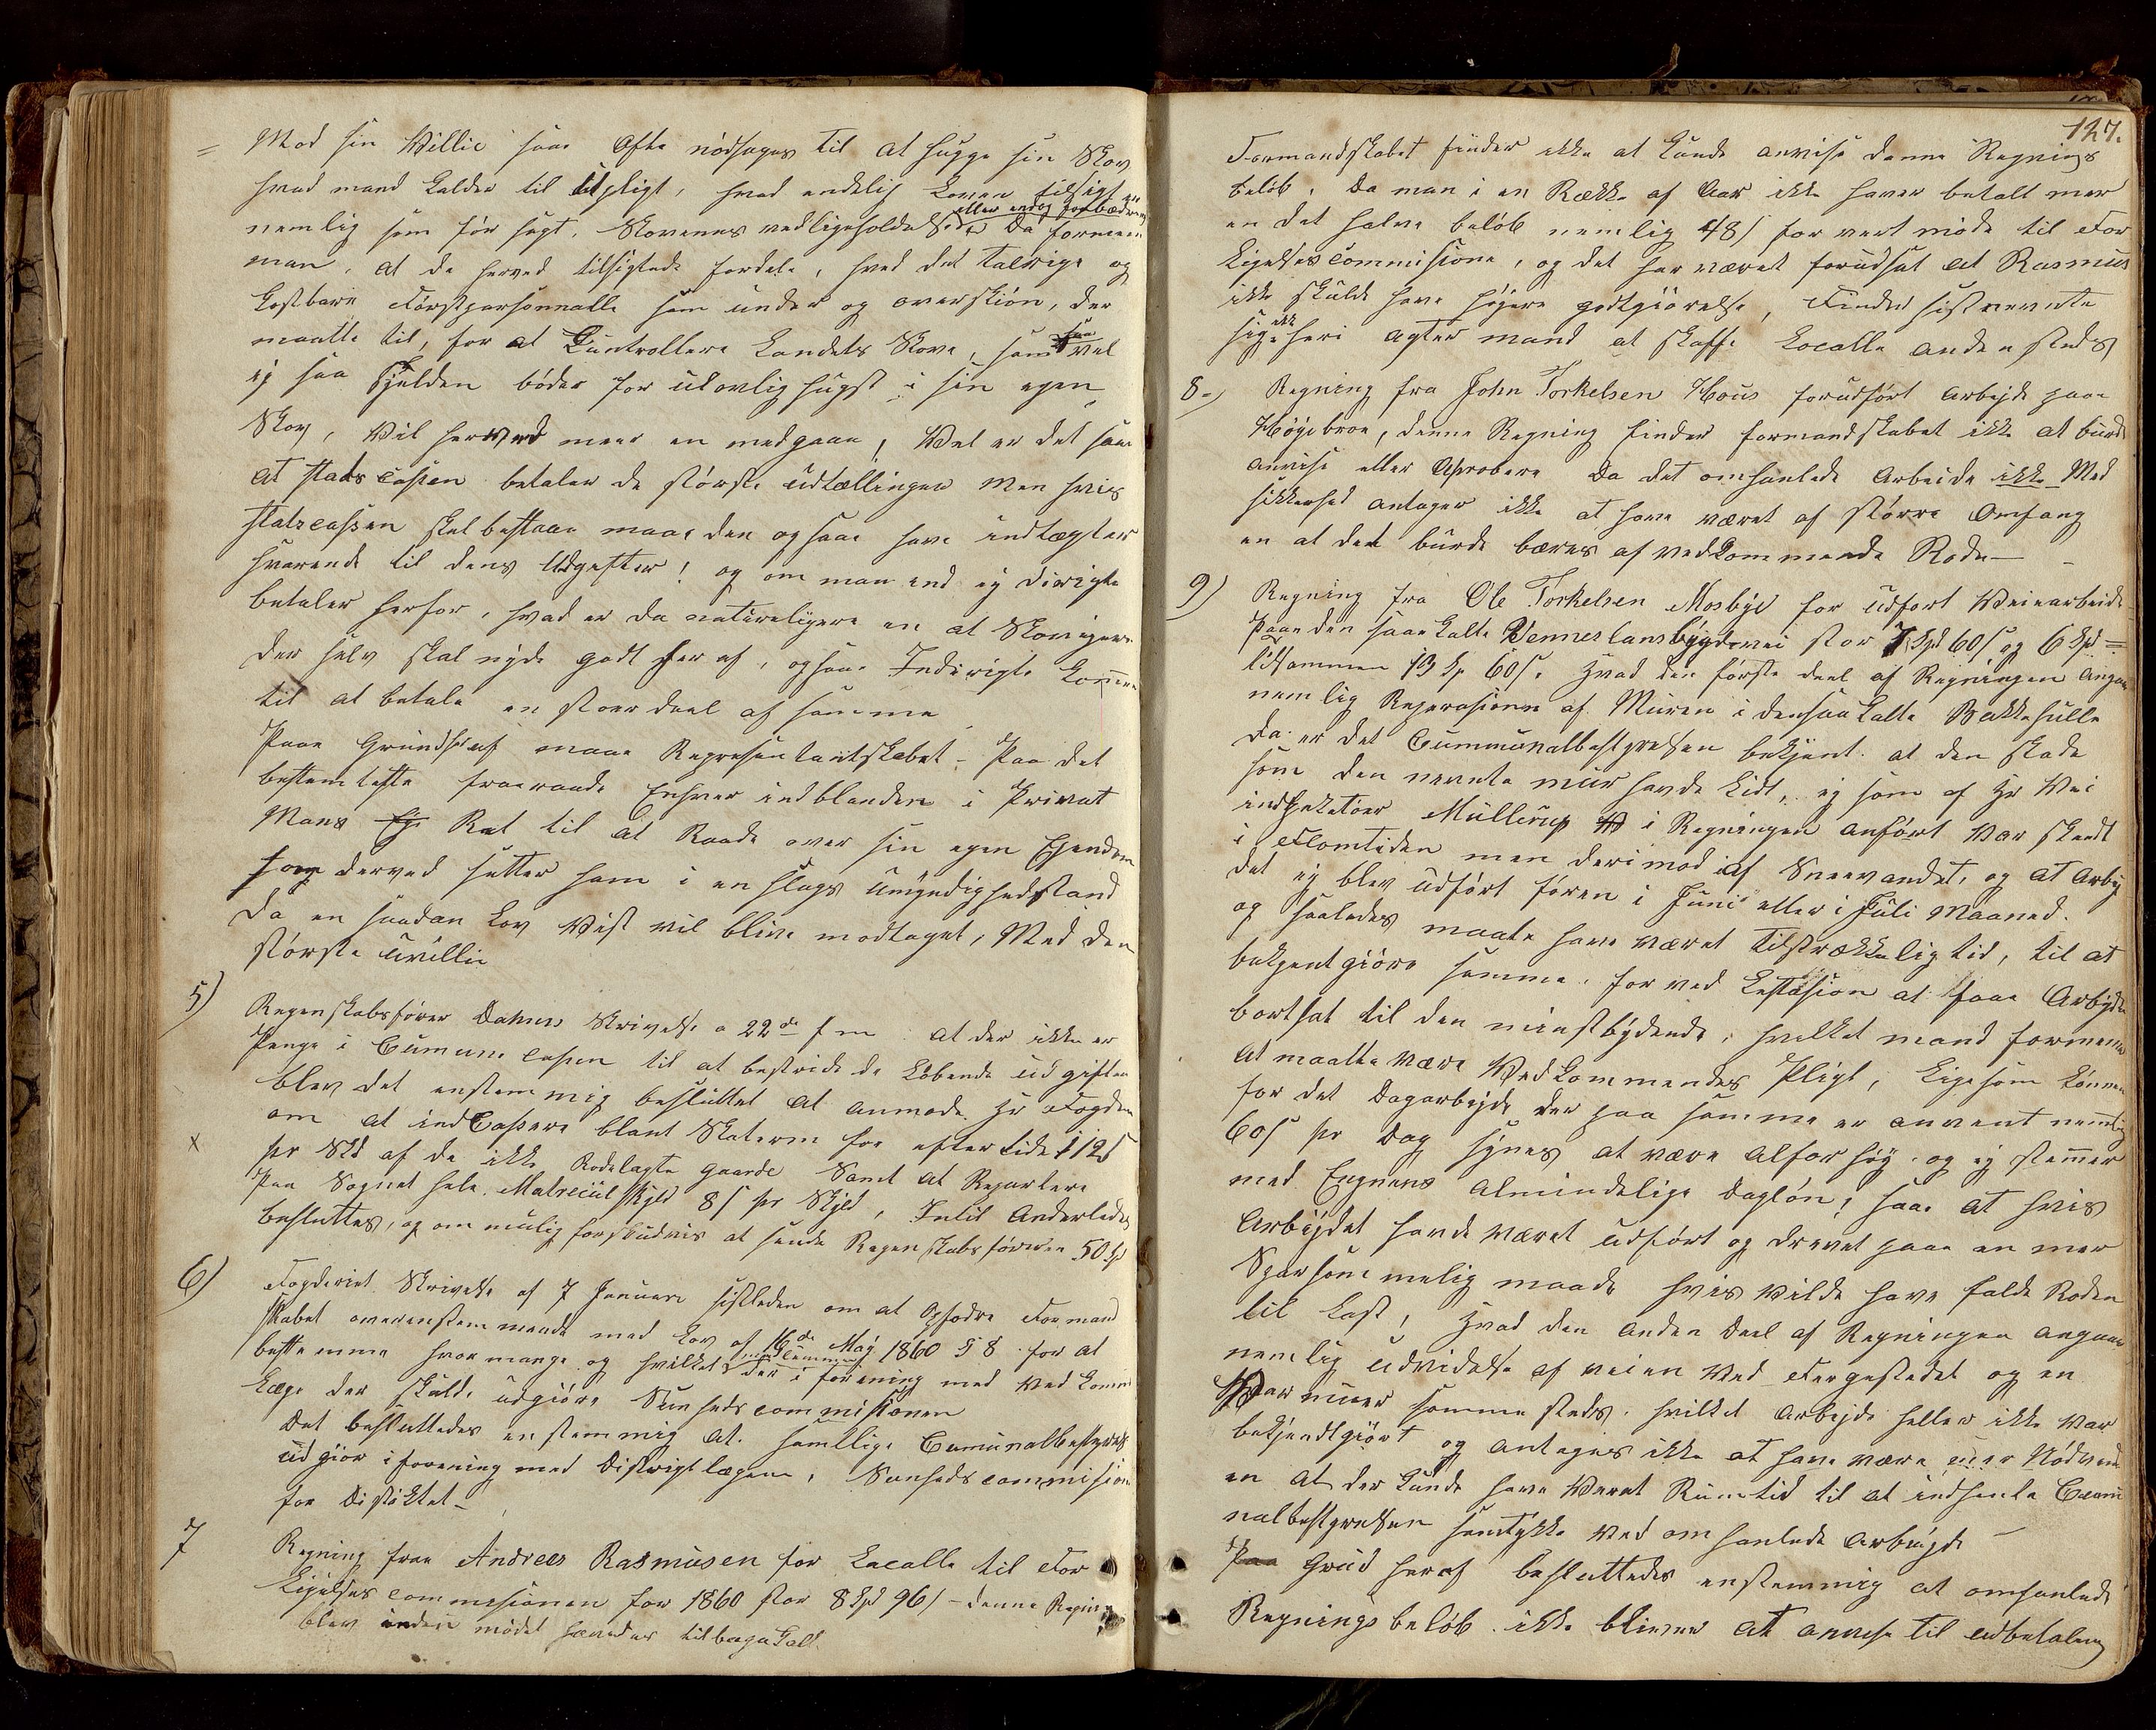 = Mod sin Willie saa Ofte nødsages til at hugge sin Skov
hvad mand kalder til ulpligt, hvad endelig Loven tilsigter
eller endog forbædring
nemlig som før sagt, Skovenes vedligeholdelse Da formener
man, at de herved tilsigtede fordele, hved det talrige og
kostbare Førstpersonnalle som under og overskjøn, der
maatte til, for at Controllere Landets Skove, samt saa vel
ej saa sjelden bøder for ulovlig hugst i sin egen
Skov, Vil herved meer en medgaae, Vel er det saa
at stads cassen betaler de største udtællinger Men hvis
statscassen skal bestaae maae den og saae have indtægter
svarende til dens Udgifter! og om man end ej dirigte
betaler herfor, hvad er da natureligere en at Skovejere
der selv skal nyde godt her af, ogsaa Indirigte komme
til at betale en stoer deel af samme
Paae Grund heraf maae Representantskabet - Paa det
bestemteste fraraade Enhver indblanden i Privat
Mans Eje Ret til at Raade over sin egen Ejendom
som derved setter ham i en slags umyndighedsstand
Da en saadan Lov Vist vil blive modtaget, Med den
største uvillie
5) Regenskabsfører Dahnes Skrivelse a 22de f m at der ikke er
Penge i Cumune cassen til at bestride de Løbende udgifter
blev det enstemmig besluttet at anmode Hr Fogden
om at indCassere blant Skaterne for eftertide 1 12 s
x pr Skd af de ikke Rodelagte gaarde Samt at Repartere
Paa Sognet hele Matreiul skyld 8 s pr Skyld, Intil Anderledes
besluttes, og om mulig forskudvis at sende Regenskabsføreren 50 Sp
6) Fogderiet Skrivelse af 7 Januari sistleden om at Opfodre Formand
skabet overenstemmende med Lov af 16de Maj 1860 § 8 for at
bestemme hvor mange og hvilket medlemmer der i forening med Vedkomm
Læge der skulde udgiøre Sunheds commissionen
Det besluttedes enstemmig at samtlige Cumunalbestyrelse
udgiør i forening med Distrigt lægen, Sunheds commission
for Distriktet -
7 Regning fraa Andreas Rasmusen for Localle til For
Ligelses commesionen for 1860 stor 8 Spd 96 s - denne Regning
blev inden mødet hævedes tilbagekalt
127.
Formandskabet finder ikke at kunde anvise denne Regnings
beløb, Da man i en Række af Aar ikke haver betalt mer
en det halve beløb nemlig 48 s for vert møde til For
Ligelsescommisione, og det har været forudsat at Rasmus
ikke skulde have højere godtgiørelse, Finder sistnevnte
sig ikke heri agter mand at skaffe Localle andensteds
8-) Regning fra John Torkelsen Hous forudført Arbejde paa
Høgebroe, denne Regning finder formandskabet ikke at burde
anvise eller Aprobere Da det omhanlede Arbeide ikke Med
sikkerhed antager ikke at have været af større Omfang
en at det burde bæres af vedkommende Rode -
9) Regning fra Ole Torkelsen Mosbye for udført Veiearbeide
Paae den saakalte Venneslansbygdevei stor 7 Spd 60 s og 6 Spd =
tilsammen 13 Sp 60 s. Hvad den første deel af Regningen Angaa
nemlig Reperasionen af Muren i densaakalte Bakkehulle
da er det Cummunalbestyrelsen bekjent at den skade
som den nevnte mur havde Lidt, ej som af Hr Vei
indspektøer Müllerup i Regningen anført Var skeedt
i Flomtiden men derimod af Sneevandet, og at Arbej
det ej blev udført føren i Juni eller i Juli Maaned.
og saaledes maate have været tilstrækkelig tid, til at
bekjentgiøre samme, for ved Lestasion at faae Arbejde
bortsat til den minstbydende, hvilket mand formener
at maatte være Vedkommendes Pligt, Ligesom Lønnen
for det Dagarbejde der paa samme er anvent nemlig
60 s pr Dag synes at være Alforhøg og ej stemer
med Egnens Almindelige Dagløn, saa at hvis
Arbejdet havde været udført og drevet paae en mer
Sparsommelig maade hvis Vilde have falde Roden
til Last, Hvad den Anden Deel af Regningen angaae
nemlig udvidelse af veien Ved Fergestedet og en
muer sammesteds, hvilket Arbejde heller ikke Var
bekjendtgiørt og antages ikke at have være mer Nødvend
en at der kunde have Været Rumtid til at indhente Cumu
nalbestyrelsen samtykke Ved omhanlede Arbejde -
Paa Grud heraf besluttedes enstemmig at omhanlede
Regnings beløb ikke bliver at anvise til udbetaling